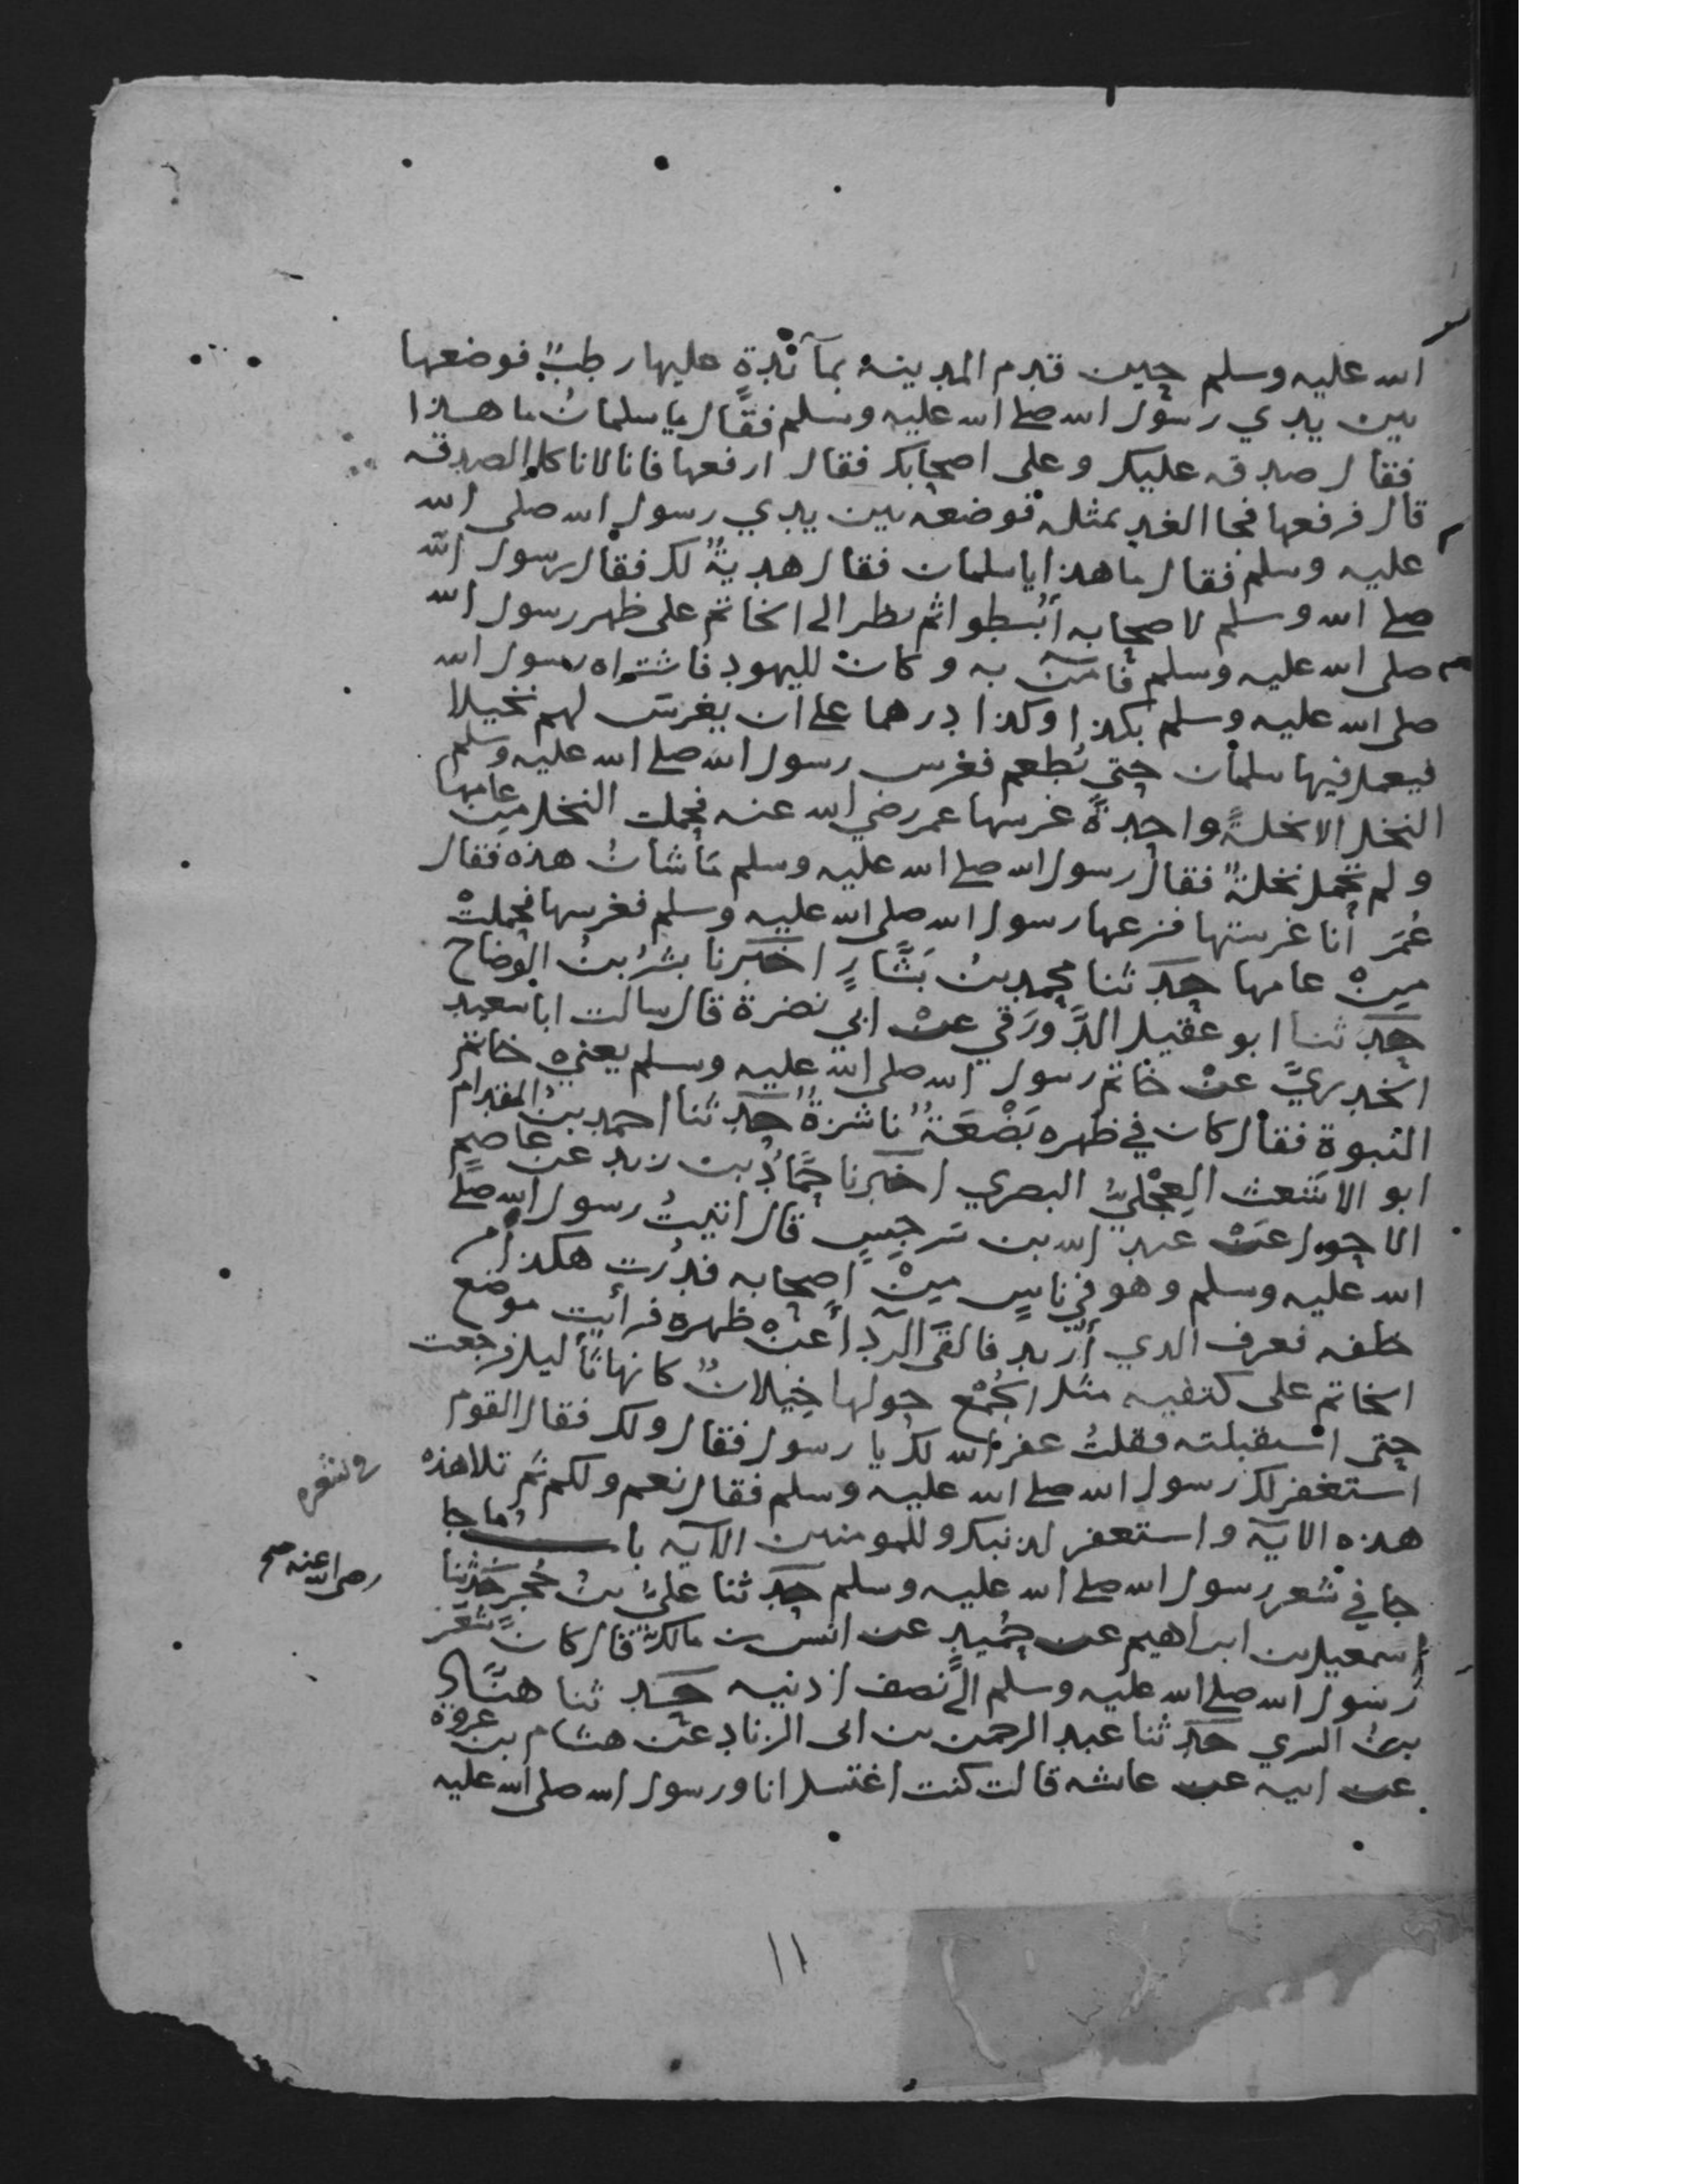 الله عليه وسلم حين قدم المدينة بمآئدةٍ عليها رطبٌ فوضعها
بين يدي رسول الله صلى الله عليه وسلم فقال يا سلمانُ ما هذا
فقال صدقه عليك وعلى اصحابك فقال ارفعها فانا لا ناكل الصدقه
قال فرفعها فجا الغد بمثله فوضعه بين يدي رسول الله صلى الله
عليه وسلم فقال ما هذا يا سلمان فقال هديةٌ لك فقال رسول الله
صلى الله وسلم لاصحابه ابسطوا ثم نظر الى الخاتم على ظهر رسول الله
صلى الله عليه وسلم فآمن به وكان لليهود فاشتراه رسول الله
صلى الله عليه وسلم بكذا وكذا درهما على ان يغرس لهم نخيلا
فيعمل فيها سلمان حتى تُطعم فغرس رسول الله صلى الله عليه وسلم
النخل الا نخلةً واحدةً غرسها عمر رضي الله عنه فحملت النخل مِن عامها
ولم تحمل نخلةٌ فقال رسول الله صلى الله عليه وسلم ما شأنُ هذه فقال
عُمَر أنا غرستها فنزعها رسول الله صلى الله عليه وسلم فغرسها فحملتْ
مِنْ عامها حدثنا محمد بنُ بَشَّارٍ اخبرنا بشرُ بنُ الوضاح
حدثنا ابو عقيل الدَّورَقي عنْ ابي نضرة قال سالت ابا سعيد
الخدريَّ عنْ خاتم رسول الله صلى الله عليه وسلم يعني خاتم
النبوة فقال كان في ظهره بَضْعَةٌ ناشزةٌ حدثنا احمد بن المقدام
ابو الاشعث العِجْليُّ البصري اخبرنا حمَّادُ بن زيد عن عاصمٍ
الاحول عَنْ عبد الله بن سَرجِسٍ قال اتيتُ رسول الله صلى
الله عليه وسلم وهو في ناسٍ مِنْ اصحابه فدُرت هكذا من
خلفه فعرف الدي أريد فالقى الردآ عنْ ظهره فرأيت موضع
الخاتم على كتفيه مثل الجُمْع حولها خِيلانٌ كانها ثآليل فرجعت
حتى استقبلته فقلتُ غفر الله لك يا رسول فقال ولك فقال القوم
استغفر لك رسول الله صلى الله عليه وسلم فقال نعم ولكم ثم تلا هذه
هذه الاية واستغفر لذنبك وللمومنين الآيه باب ما جا
جا في شعر رسول الله صلى الله عليه وسلم حدثنا عليُّ بنُ حُجرٍ حدثنا
اسمعيل بن ابراهيم عن حُميدٍ عن انس بن مالك قال كان شعر
رسول الله صلى الله عليه وسلم الى نصف اذنيه حدثنا هنَّاد
بنُ السري حدثنا عبد الرحمن بن ابى الزناد عَن هشام بن عروة
عن ابيه عن عايشه قالت كنت اغتسل انا ورسول الله صلى الله عليه
رضى الله عنه صح
١١